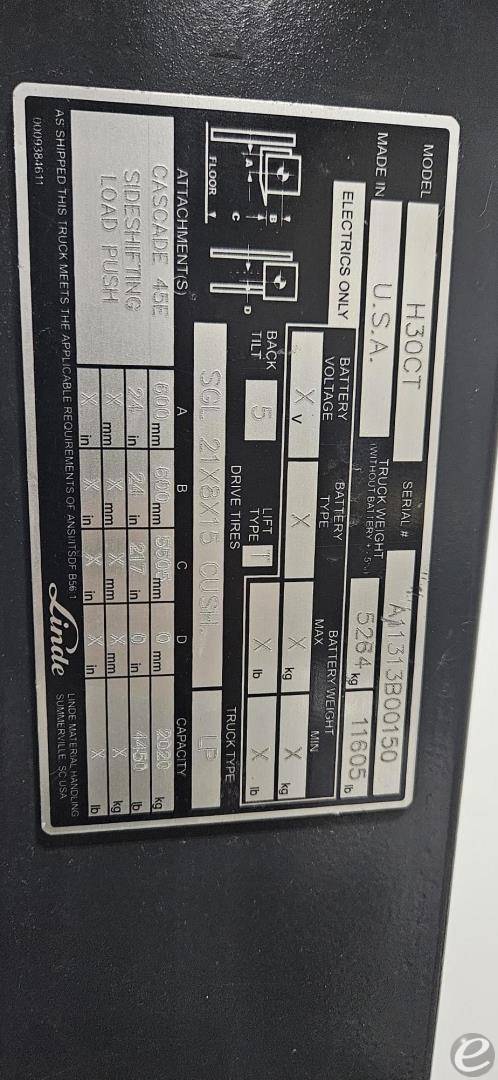 MODEL H30CT SERIAL # A11313B00150
MADE IN U.S.A. TRUCK WEIGHT (WITHOUT BATTERY +- 5%) 5264 kg 11605 lb
ELECTRICS ONLY
BATTERY VOLTAGE BATTERY TYPE BATTERY WEIGHT MAX MIN
X V X X kg X kg
X lb X lb
BACK TILT 5 LIFT TYPE T
DRIVE TIRES TRUCK TYPE
SGL 21X8X15 CUSH. LP
FLOOR A B C D
ATTACHMENT(S) A B C D CAPACITY
CASCADE 45E 600 mm 600 mm 5505 mm 0 mm 2020 kg
SIDESHIFTING 24 in 24 in 217 in 0 in 4450 lb
LOAD PUSH X mm X mm X mm X mm X kg
X in X in X in X in X lb
AS SHIPPED THIS TRUCK MEETS THE APPLICABLE REQUIREMENTS OF ANSI/ITSDF B56.1
0009384611
Linde
LINDE MATERIAL HANDLING
SUMMERVILLE, SC USA
e